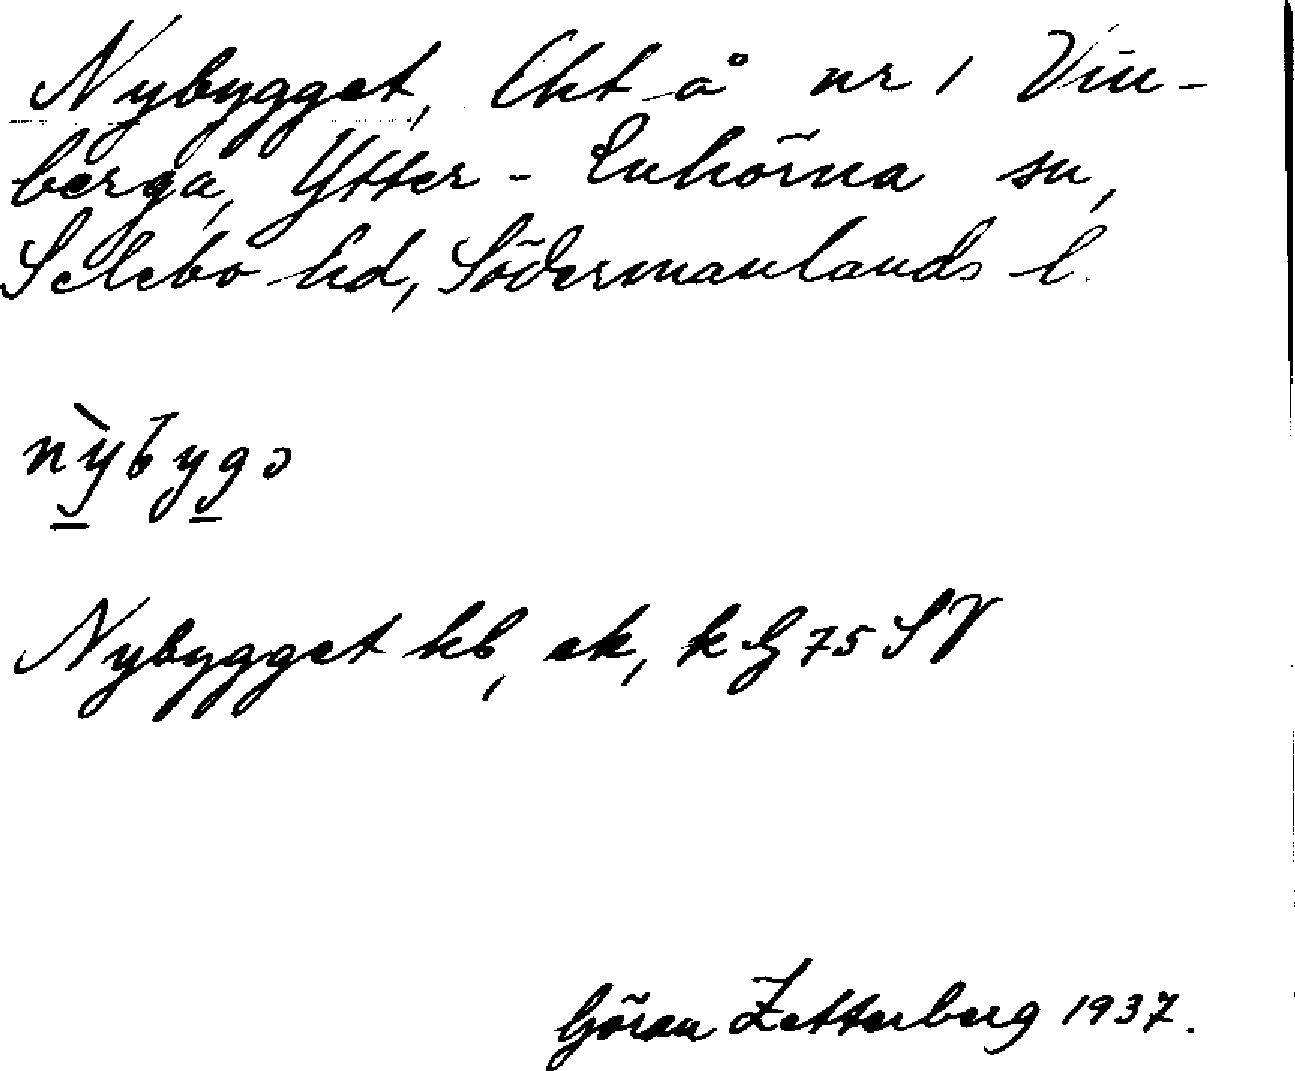 Nybygget, lht å nr 1 Vin-
berga, Ytter-Enhörna sn,
Selebo hd, Södermanlands l.
nỳbygə
Nybygget hb, ek, k G 75 SV
Göran Zetterberg 1937.